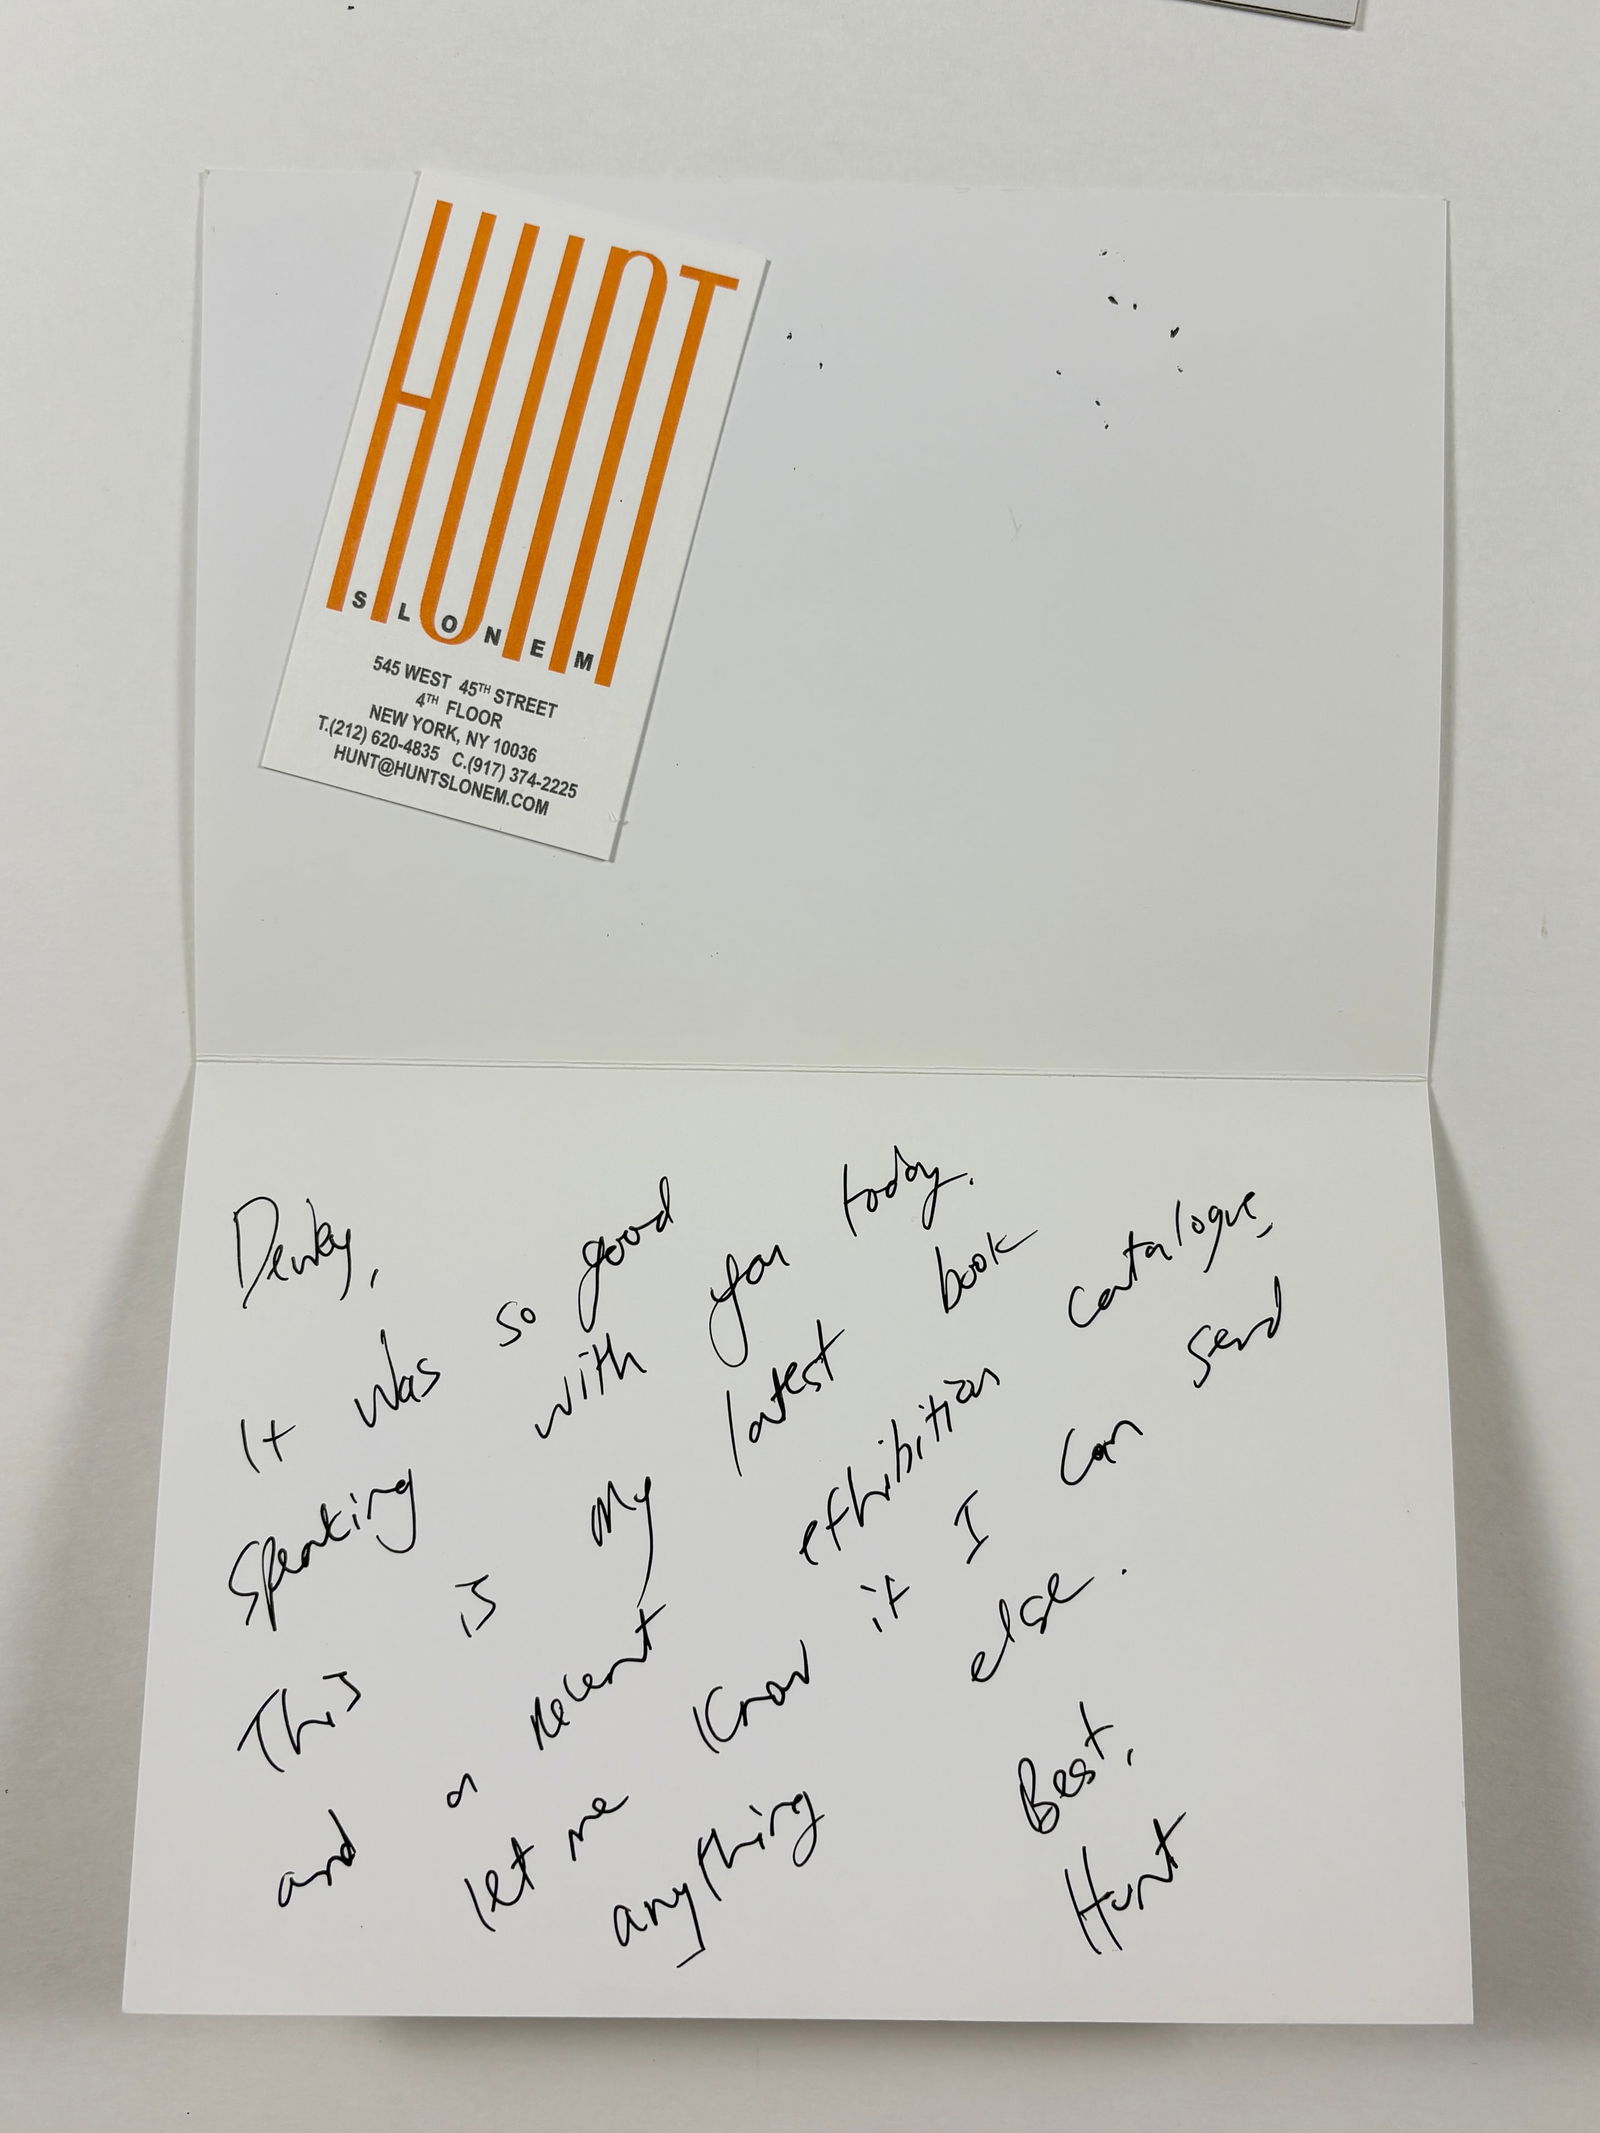 HUNT
SLONEM
545 WEST 45TH STREET
4TH FLOOR
NEW YORK, NY 10036
T.(212) 620-4835 C.(917) 374-2225
HUNT@HUNTSLONEM.COM
It was so good
speaking with you today.
This is my latest book
and a recent exhibition catalogue.
let me know if I can send
anything else.
Best,
Hunt